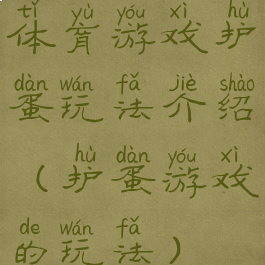 tǐ yù yóu xì hù
体育游戏护
dàn wán fǎ jiè shào
蛋玩法介绍
hù dàn yóu xì
（护蛋游戏
de wán fǎ
的玩法）